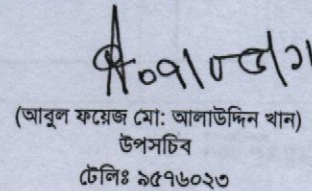 (আবুল ফয়েজ মো: আলাউদ্দিন খান)
উপসচিব
টেলিঃ ৯৫৭৬০২৩